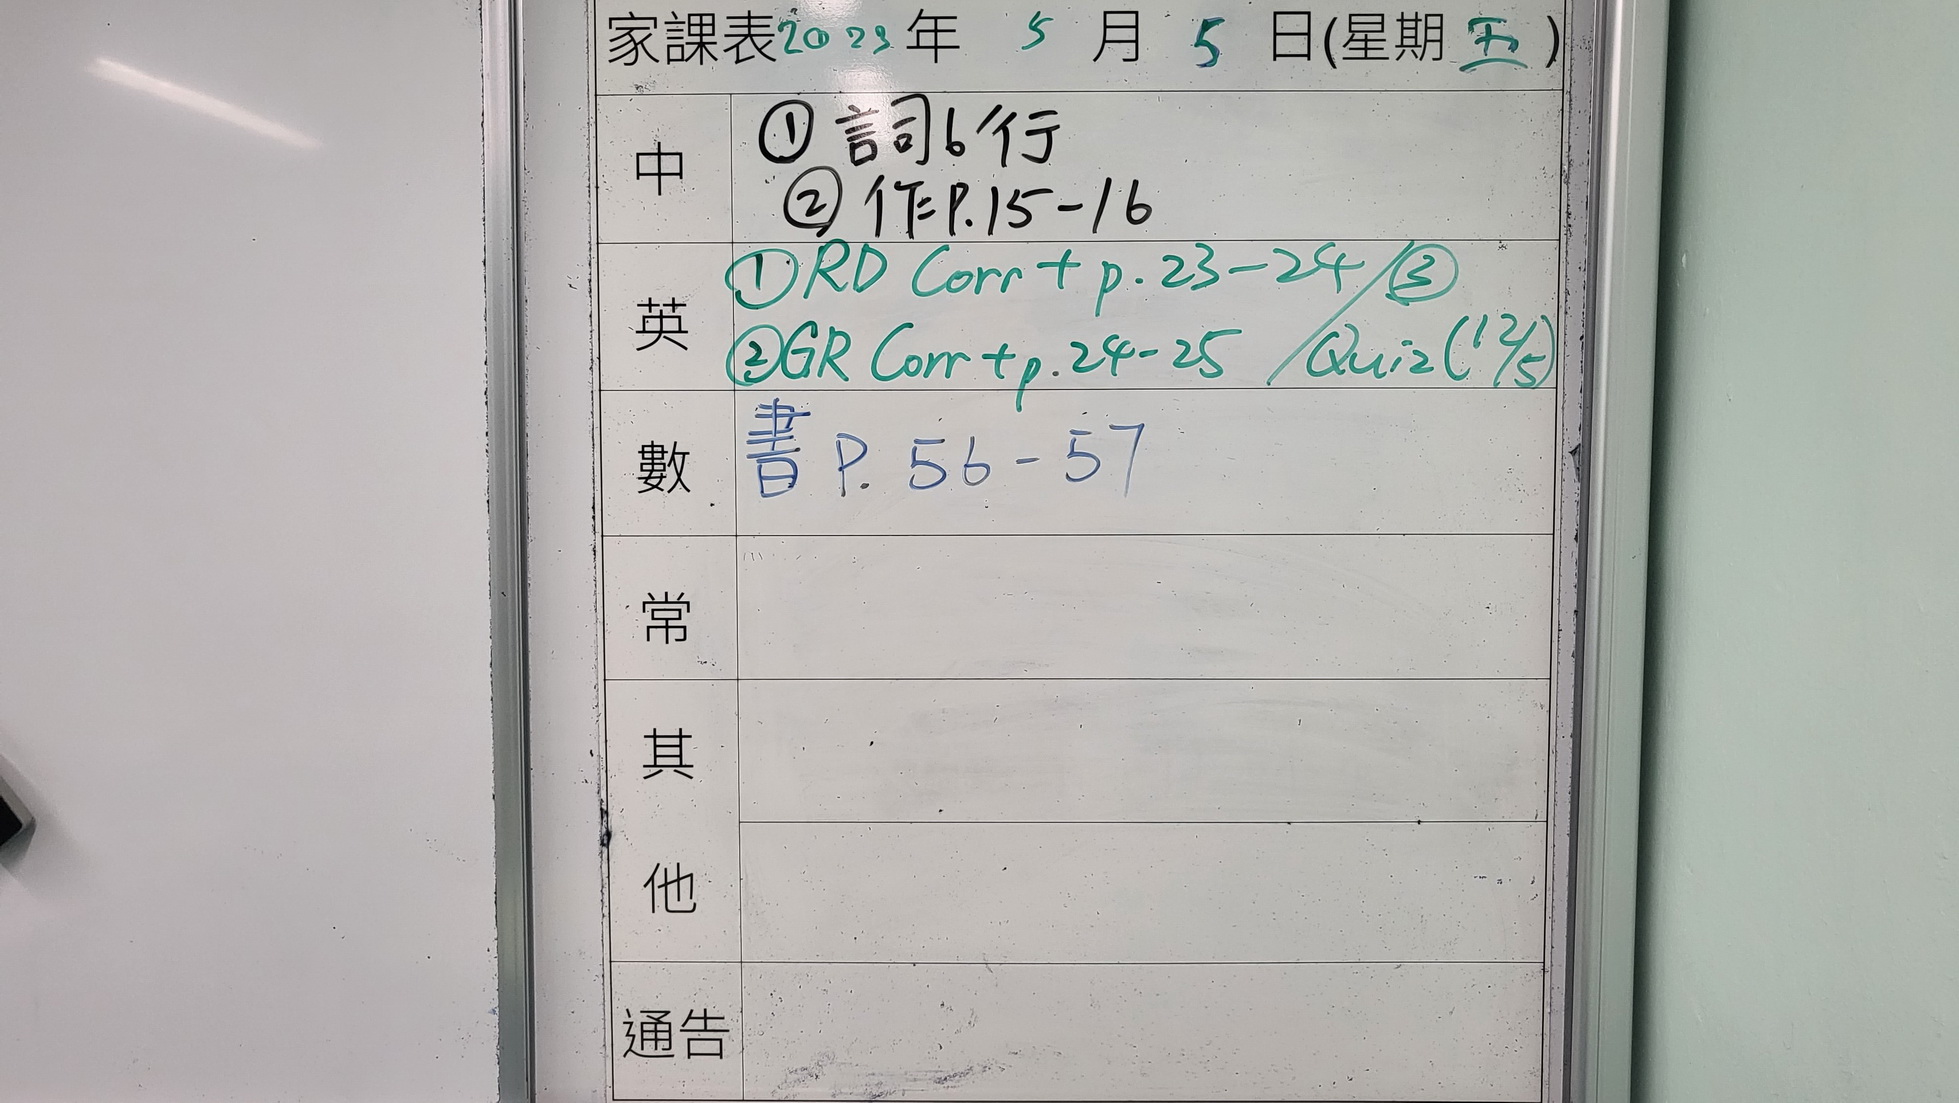 家課表2023年 5 月 5 日(星期五)
中
① 詞6行
② 作P.15-16
英
① RD Corr + p.23-24 / ③
② GR Corr + p.24-25 / Quiz (12/5)
數
書 P. 56-57
常
其
他
通告